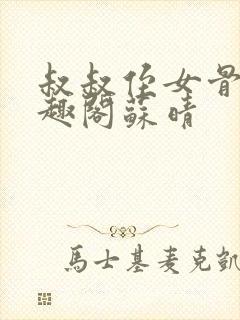 叔叔侄女骨
趣閣蘇晴
馬士基麦克凱